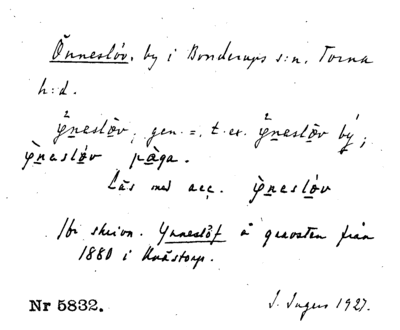 Önneslöv, by i Bonderups s:n, Torna
h:d.
ỳneslöv, gen. =, t. ex. ỳneslöv bý;
ỳneslöv pàga.
Läs med acc. ỳneslöv
Ibl skrivn. Ynneslöf å gravsten från
1880 i Kvästorp.
Nr 5832. J. Ingers 1927.